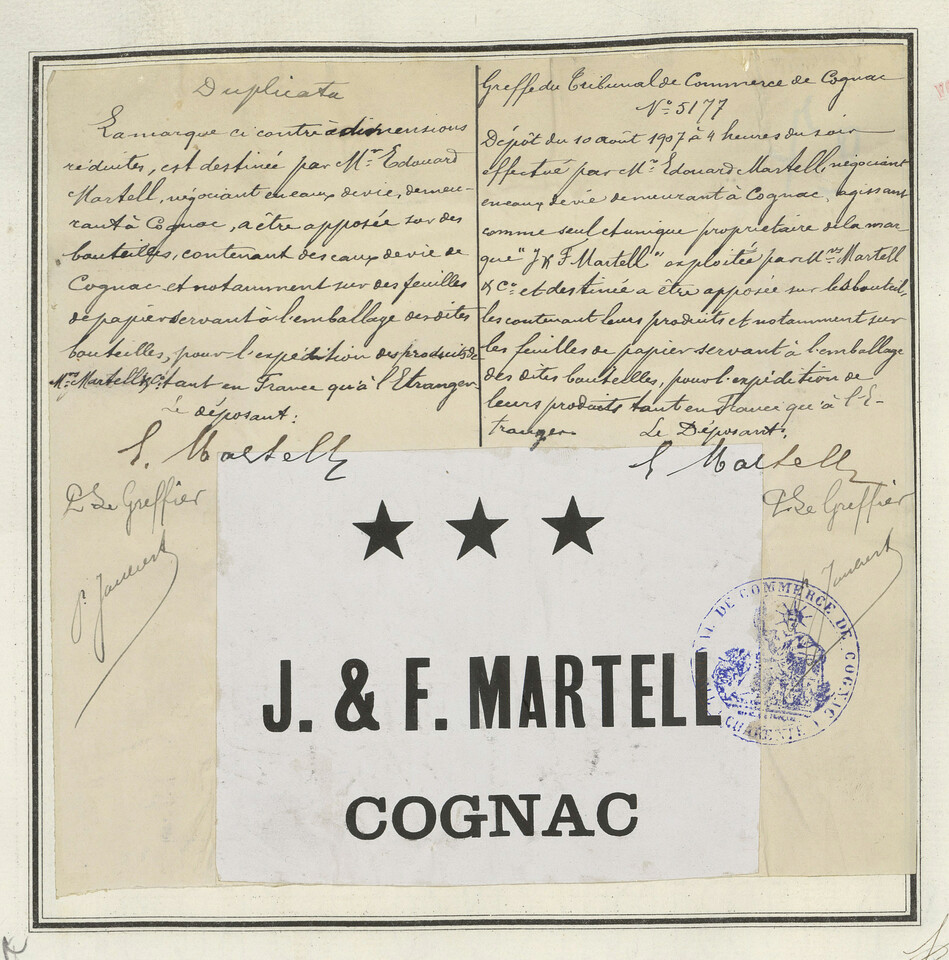 Duplicata
La marque ci contre à dimensions
réduites, est destinée par Mr. Edouard
Martell, négociant en eaux de vie, demeu-
rant à Cognac, a être apposée sur des
bouteilles, contenant des eaux de vie de
Cognac et notamment sur des feuilles
de papier servant à l'emballage des dites
bouteilles, pour l'expédition des produits de
Mrs Martell & Cie tant en France qu'à l'Etranger
Le déposant:
E. Martell
Pr Le Greffier
Greffe du Tribunal de Commerce de Cognac
No. 5177
Dépôt du 10 août 1907 à 4 heures du soir
effectué par Mr. Edouard Martell, négociant
en eaux de vie demeurant à Cognac, agissant
comme seul et unique propriétaire de la mar
que "J & F Martell" exploitée par Mrs Martell
& Cie et destinée a être apposée sur les bouteil,
les contenant leurs produits et notamment sur
les feuilles de papier servant à l'emballage
des dites bouteilles, pour l'expédition de
leurs produits tant en France qu'à l'E-
tranger
Le Déposant:
E Martell
Pr Le Greffier
★ ★ ★
J. & F. MARTELL
COGNAC
DE COMMERCE DE COGNAC
CHARENTE